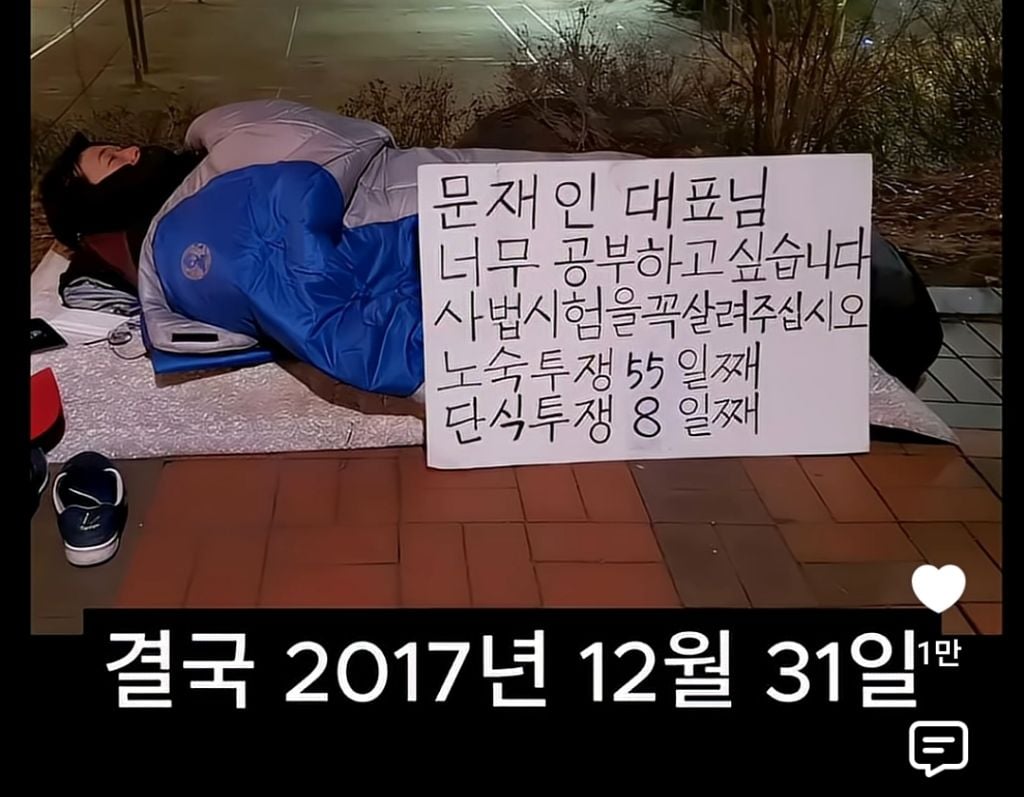 문재인 대표님
너무 공부하고싶습니다
사법시험을꼭살려주십시오
노숙투쟁 55일째
단식투쟁 8일째
결국 2017년 12월 31일
1만